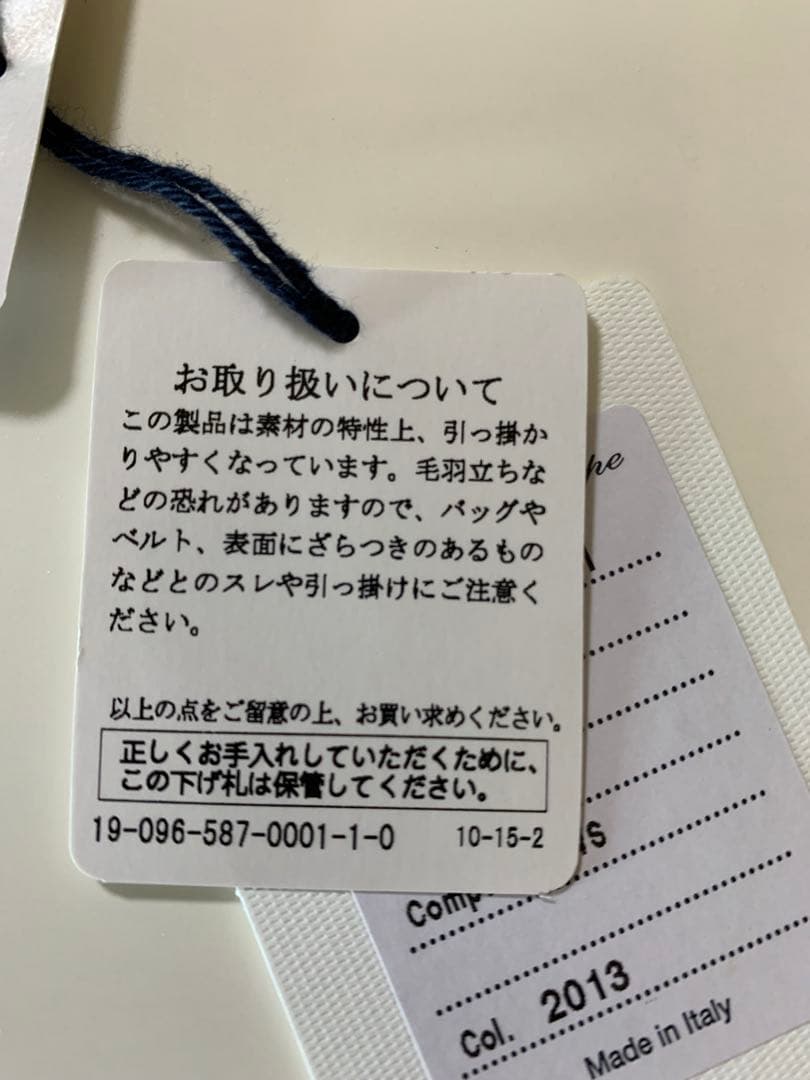 お取り扱いについて
この製品は素材の特性上、引っ掛か
りやすくなっています。毛羽立ちな
どの恐れがありますので、バッグや
ベルト、表面にざらつきのあるもの
などとのスレや引っ掛けにご注意く
ださい。
以上の点をご留意の上、お買い求めください。
正しくお手入れしていただくために、
この下げ札は保管してください。
19-096-587-0001-1-0 10-15-2
Col. 2013
Made in Italy